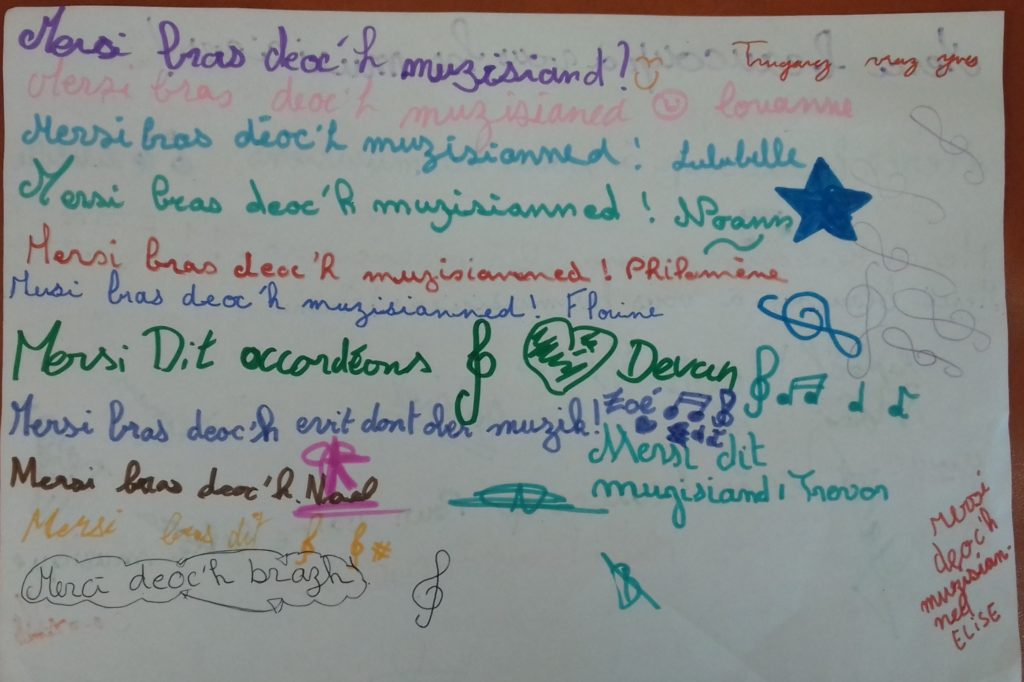 Mersi bras deoc'h muzisiand !
Trugarez vraz yves
Mersi bras deoc'h muzisianed louanne
Mersi bras déoc'h muzisianned ! Lulubelle
Mersi bras deoc'h muzisianned ! Noann
Mersi bras deoc'h muzisianned ! Philomène
Mersi bras deoc'h muzisianned ! Florine
Mersi Dit accordéons Devan
Mersi bras deoc'h evit dont der muzik ! Zoé
Mersi dit
muzisiand, Trevor
Mersi bras deoc'h. Nael
Mersi bras dit
Merci deoc'h brazh
mersi
deoc'h
muzisian-
ned
ELISE